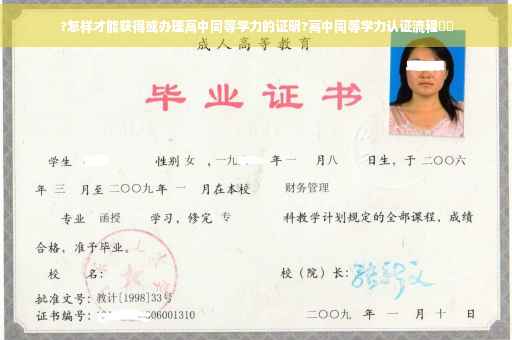 ?怎样才能获得或办理高中同等学力的证明?高中同等学力认证流程
成人高等教育
毕业证书
学生 性别 女 ,一九 年一 月八 日生，于二〇〇六
年 三 月至二〇〇九年 一 月在本校 财务管理
专业 函授 学习，修完 专 科教学计划规定的全部课程，成绩
合格，准予毕业。
校 名: 校（院）长:
批准文号: 教计[1998]33号
证书编号: 006001310 二〇〇九 年 一 月 十 日